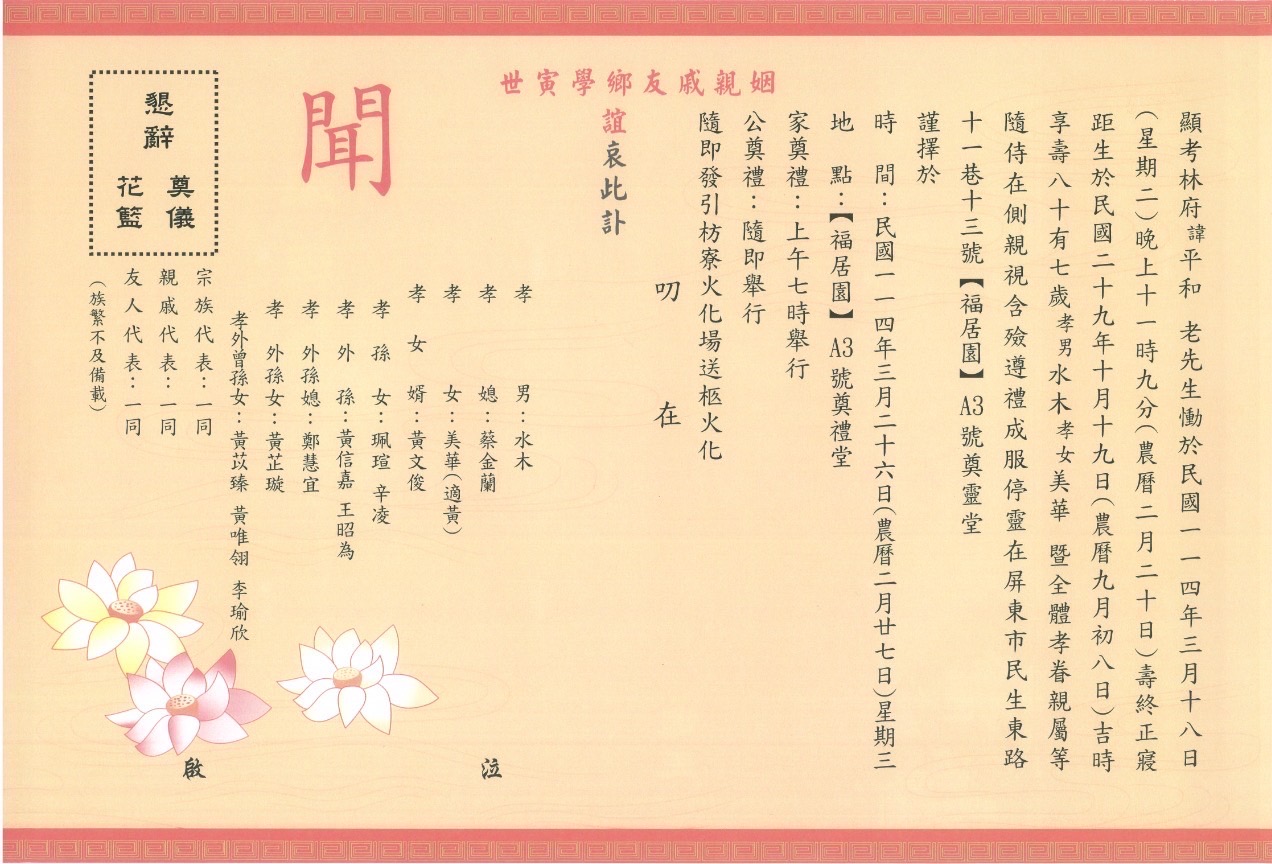 顯考林府諱平和 老先生慟於民國一一四年三月十八日
(星期二)晚上十一時九分(農曆二月二十日)壽終正寢
距生於民國二十九年十月十九日(農曆九月初八日)吉時
享壽八十有七歲孝男水木孝女美華 暨全體孝眷親屬等
隨侍在側親視含殮遵禮成服停靈在屏東市民生東路
十一巷十三號【福居園】A3號奠靈堂
謹擇於
時 間:民國一一四年三月二十六日(農曆二月廿七日)星期三
地 點:【福居園】A3號奠禮堂
家奠禮:上午七時舉行
公奠禮:隨即舉行
隨即發引枋寮火化場送柩火化
叨 在
姻親戚友鄉學寅世
誼哀此訃
聞
孝 男:水木
孝 媳:蔡金蘭
孝 女:美華(適黃)
孝 女 婿:黃文俊
孝 孫 女:珮瑄 辛凌
孝 外 孫:黃信嘉 王昭為
孝 外孫媳:鄭慧宜
孝 外孫女:黃芷璇
孝外曾孫女:黃苡臻 黃唯翎 李瑜欣
泣
啟
宗族代表:一同
親戚代表:一同
友人代表:一同
(族繁不及備載)
懇辭
奠儀
花籃